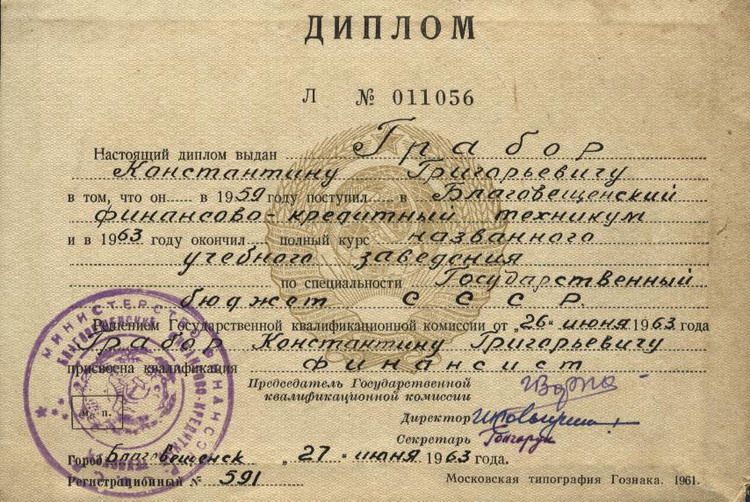 ДИПЛОМ
Л № 011056
Настоящий диплом выдан Грабор
Константину Григорьевичу
в том, что он в 1959 году поступил в Благовещенский
финансово-кредитный техникум
и в 1963 году окончил полный курс названного
учебного заведения
по специальности Государственный
бюджет СССР
Решением Государственной квалификационной комиссии от „26" июня 1963 года
Грабор Константину Григорьевичу
присвоена квалификация финансист
Председатель Государственной
квалификационной комиссии
Директор
Секретарь
МИНИСТЕРСТВО ФИНАНСОВ
м. п.
Город Благовещенск „27" июня 1963 года.
Регистрационный № 591
Московская типография Гознака. 1961.